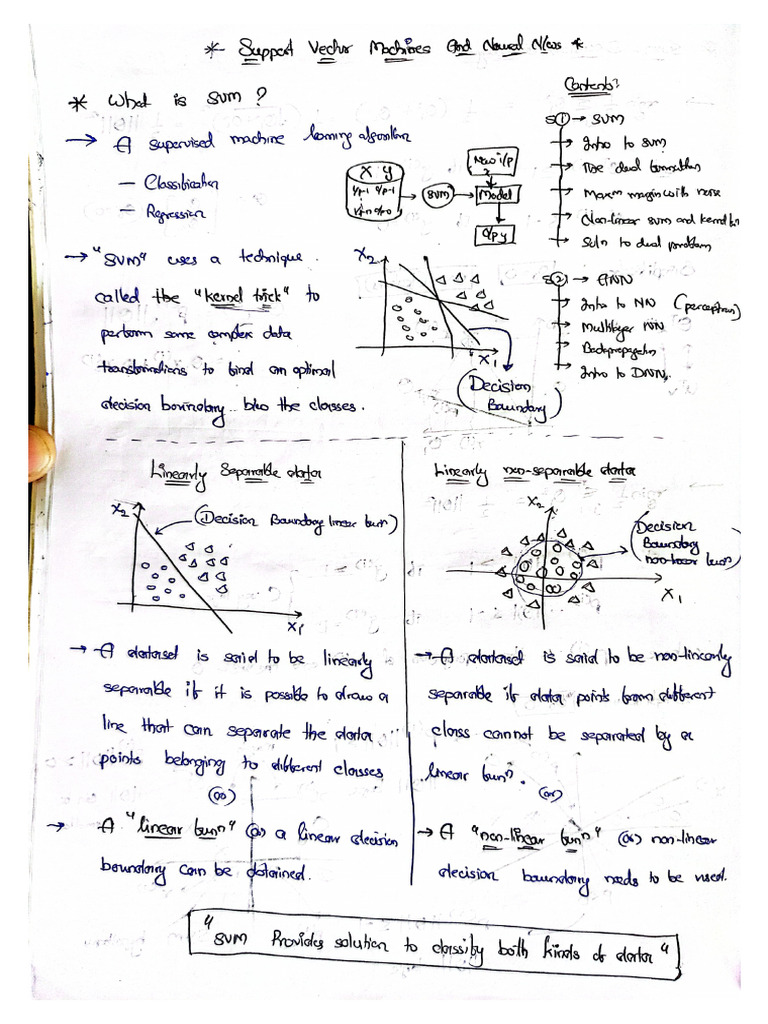 * Support Vector Machines And Neural N/ws *
* What is SVM?
→ A supervised machine learning algorithm
- Classification
- Regression
X y
i/p-1 o/p-1
i/p-n o/p-n
SVM
Model
New i/p
x
o/p y
→ "SVM" uses a technique
called the "kernel trick" to
perform some complex data
transformations to find an optimal
decision boundary b/w the classes.
X2
X1
(Decision
Boundary)
Contents:
S① → SVM
→ Intro to SVM
→ The dual formulation
→ Maxm margin with noise
→ Non-linear SVM and kernel fn
→ Soln to dual problem
S② → ANN
→ Intro to NN (perceptron)
→ Multilayer NN
→ Backpropagation
→ Intro to DNN
Linearly Separable data
X2
X1
(Decision Boundary linear funn)
→ A dataset is said to be linearly
separable if it is possible to draw a
line that can separate the data
points belonging to different classes
(or)
→ A "linear funn" (or) a linear decision
boundary can be obtained.
Linearly non-separable data
X2
X1
(Decision
Boundary
non-linear funn)
→ A dataset is said to be non-linearly
separable if data points from different
class cannot be separated by a
linear funn.
(or)
→ A "non-linear funn" (or) non-linear
decision boundary needs to be used.
"SVM Provides solution to classify both kinds of data"